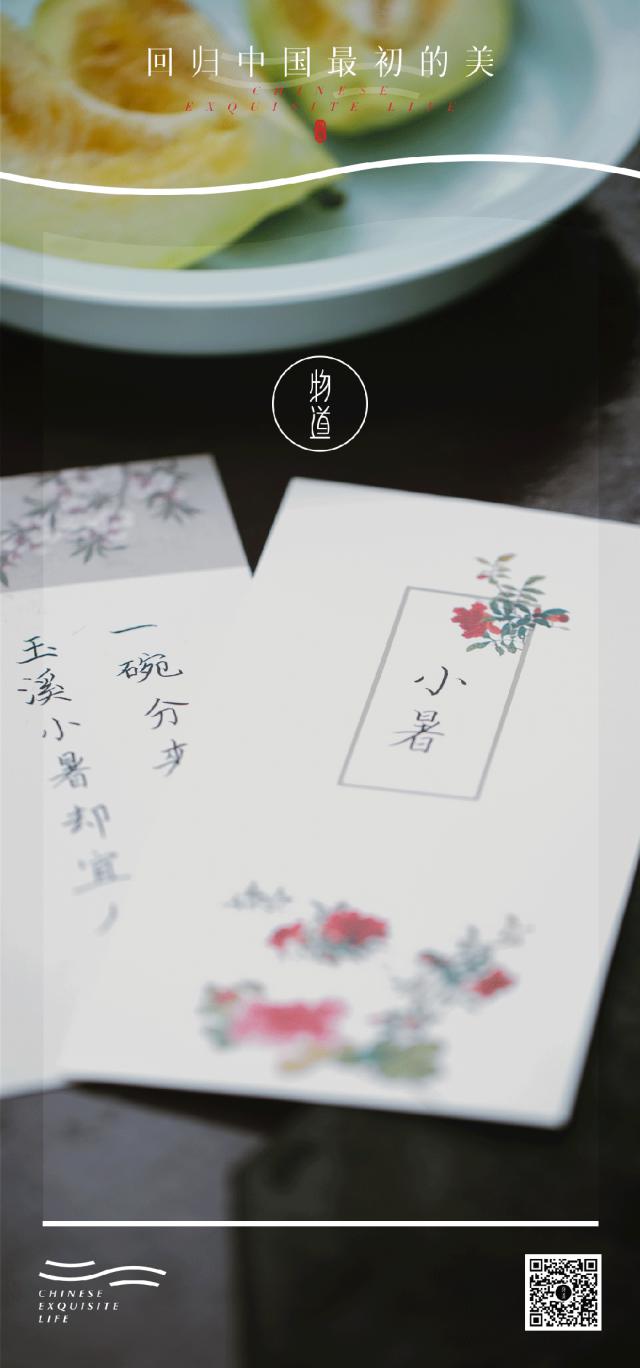 回归中国最初的美
CHINESE
EXQUISITE LIFE
物道
小暑
一碗分
玉溪小暑却宜
CHINESE
EXQUISITE
LIFE